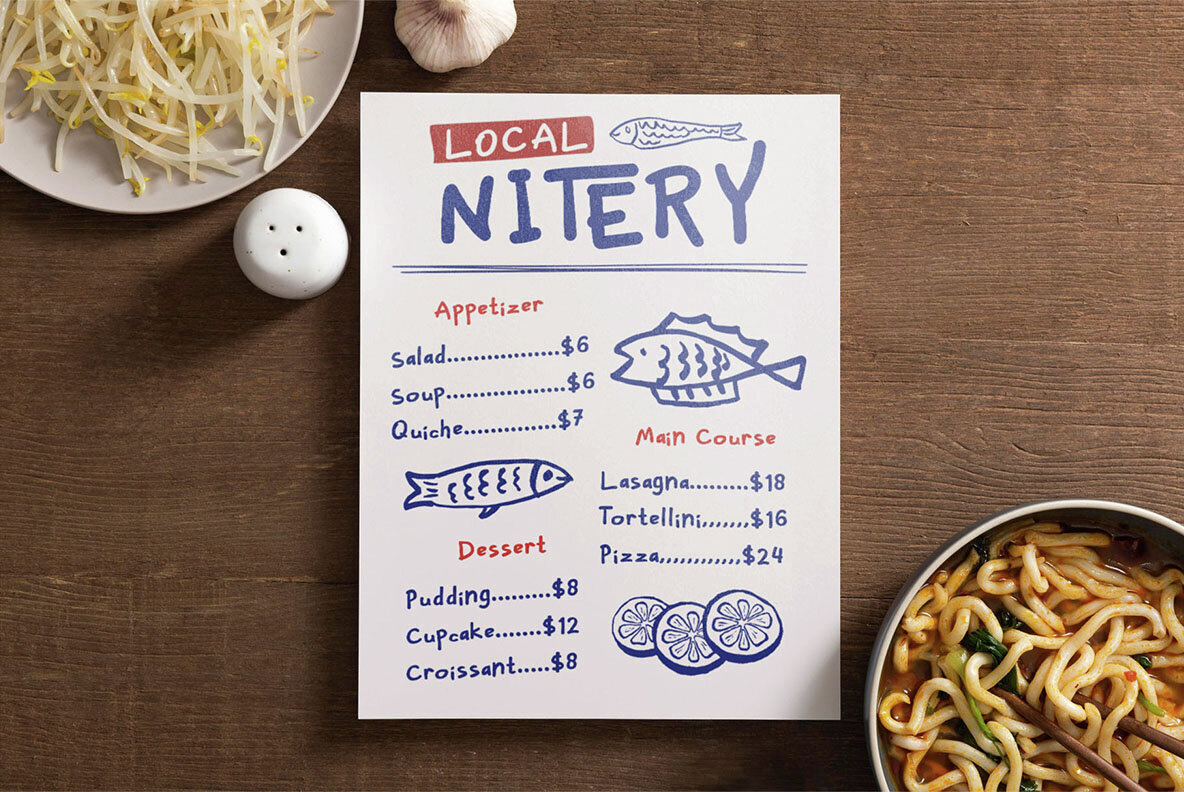 LOCAL
NITERY
Appetizer
Salad.................$6
Soup..................$6
Quiche..............$7
Main Course
Lasagna.........$18
Tortellini,,,,,,,$16
Pizza,,,,,,,,,,,,$24
Dessert
Pudding.........$8
Cupcake.......$12
Croissant.....$8